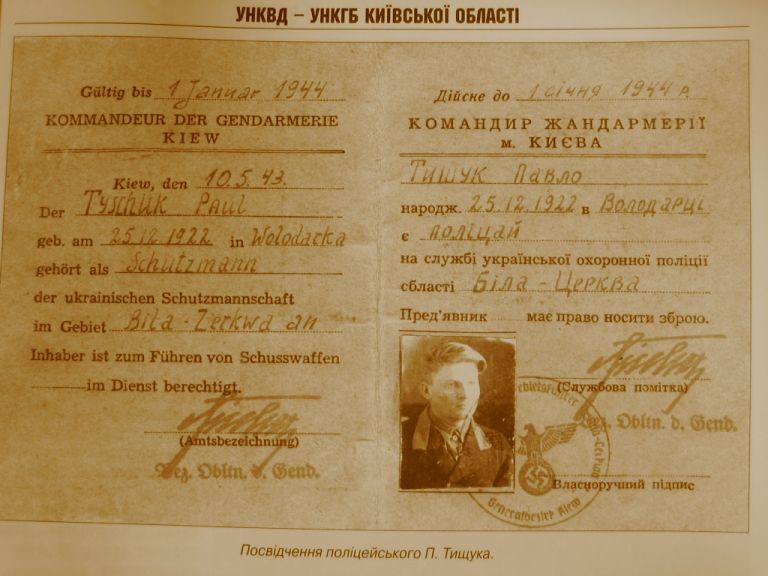 УНКВД – УНКГБ КИЇВСЬКОЇ ОБЛАСТІ
Gültig bis 1 Januar 1944
KOMMANDEUR DER GENDARMERIE
KIEW
Kiew, den 10.5.43.
Der Tyschuk Paul
geb. am 25.12.1922 in Wolodacka
gehört als Schutzmann
der ukrainischen Schutzmannschaft
im Gebiet Bila-Zerkwa an
Inhaber ist zum Führen von Schusswaffen
im Dienst berechtigt.
(Amtsbezeichnung)
Bez. Obltn. d. Gend.
Дійсне до 1 січня 1944 р.
КОМАНДИР ЖАНДАРМЕРІЇ
м. КИЄВА
Тищук Павло
народж. 25.12.1922 в Володарці
є поліцай
на службі української охоронної поліції
області Біла-Церква
Пред'явник має право носити зброю.
(Службова помітка)
Bez. Obltn. d. Gend.
Власноручний підпис
Generalbezirk Kiew
Посвідчення поліцейського П. Тищука.